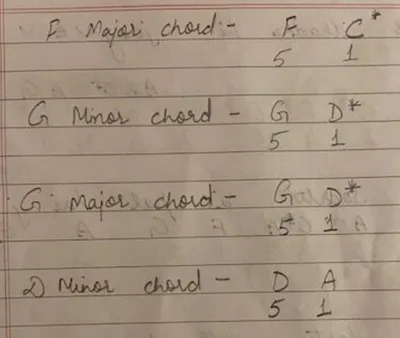 F Major chord - F C*
5 1
G Minor chord - G D*
5 1
G Major chord - G D*
5* 1
D Minor chord - D A
5 1